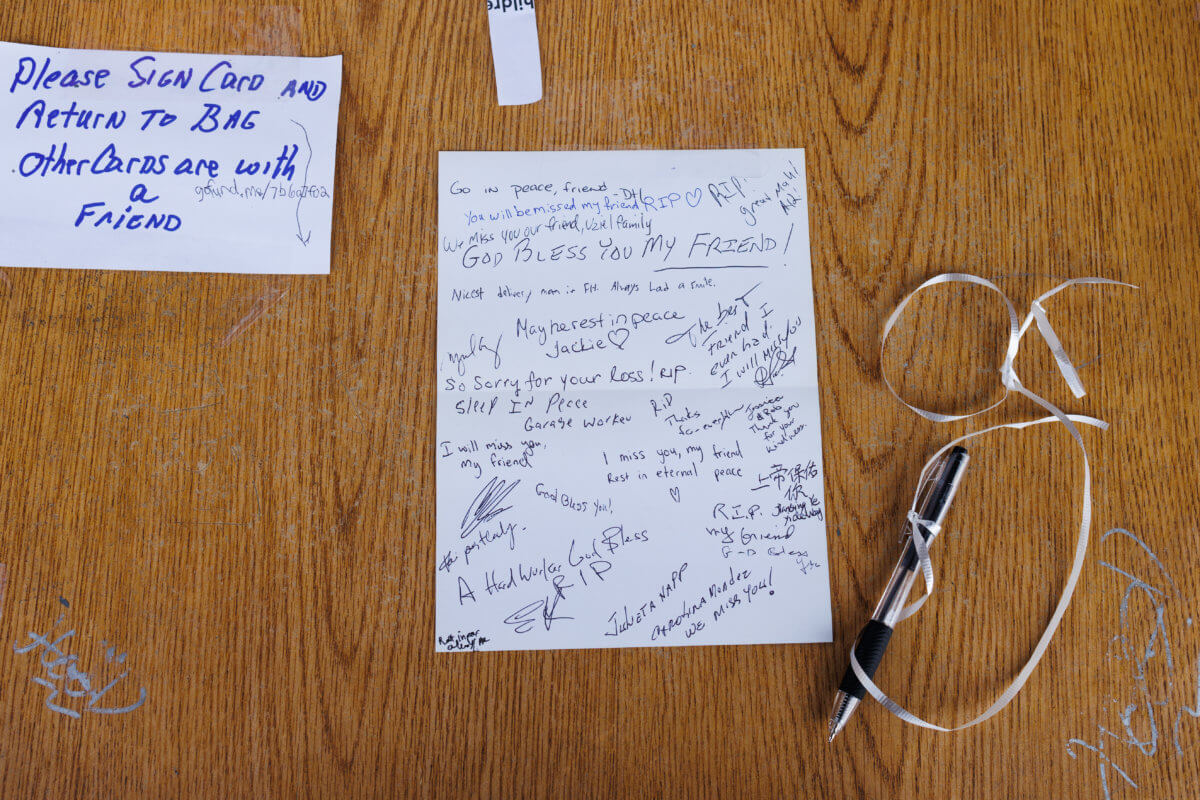 hildre
Please SIGN CARD AND
Return TO BAG
Other CARDS are with
a
gofund.me/7b6a7f02
FRIEND
Go in peace, friend
You will be missed my friend
RIP ♡
RIP
great
We miss you our friend, Uziel family
GOD BLESS YOU MY FRIEND!
Nicest delivery man in FH. Always had a smile.
May he rest in peace
Jackie ♡
The best
Friend I
ever had.
I will Miss you
So sorry for your loss! RIP.
SLEEP IN Peace
Garage Worker
RIP
Thanks
for everything
Jessica
& Rob
Thank you
for your
kindness.
I will miss you,
my friend
I miss you, my friend
Rest in eternal peace
♡
上帝保佑
你
God Bless You!
R.I.P.
my friend
G-D Bless
you
A Hard Worker God Bless
RIP
JULIETA NAPP
CAROLINA Mendez
WE MISS YOU!